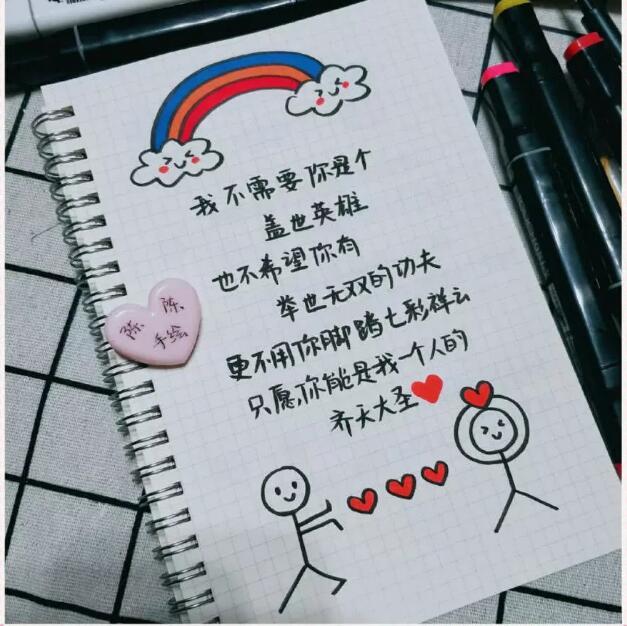 我不需要你是个
盖世英雄
也不希望你有
举世无双的功夫
更不用你脚踏七彩祥云
只愿,你能是我一个人的
齐天大圣
陈陈
手绘